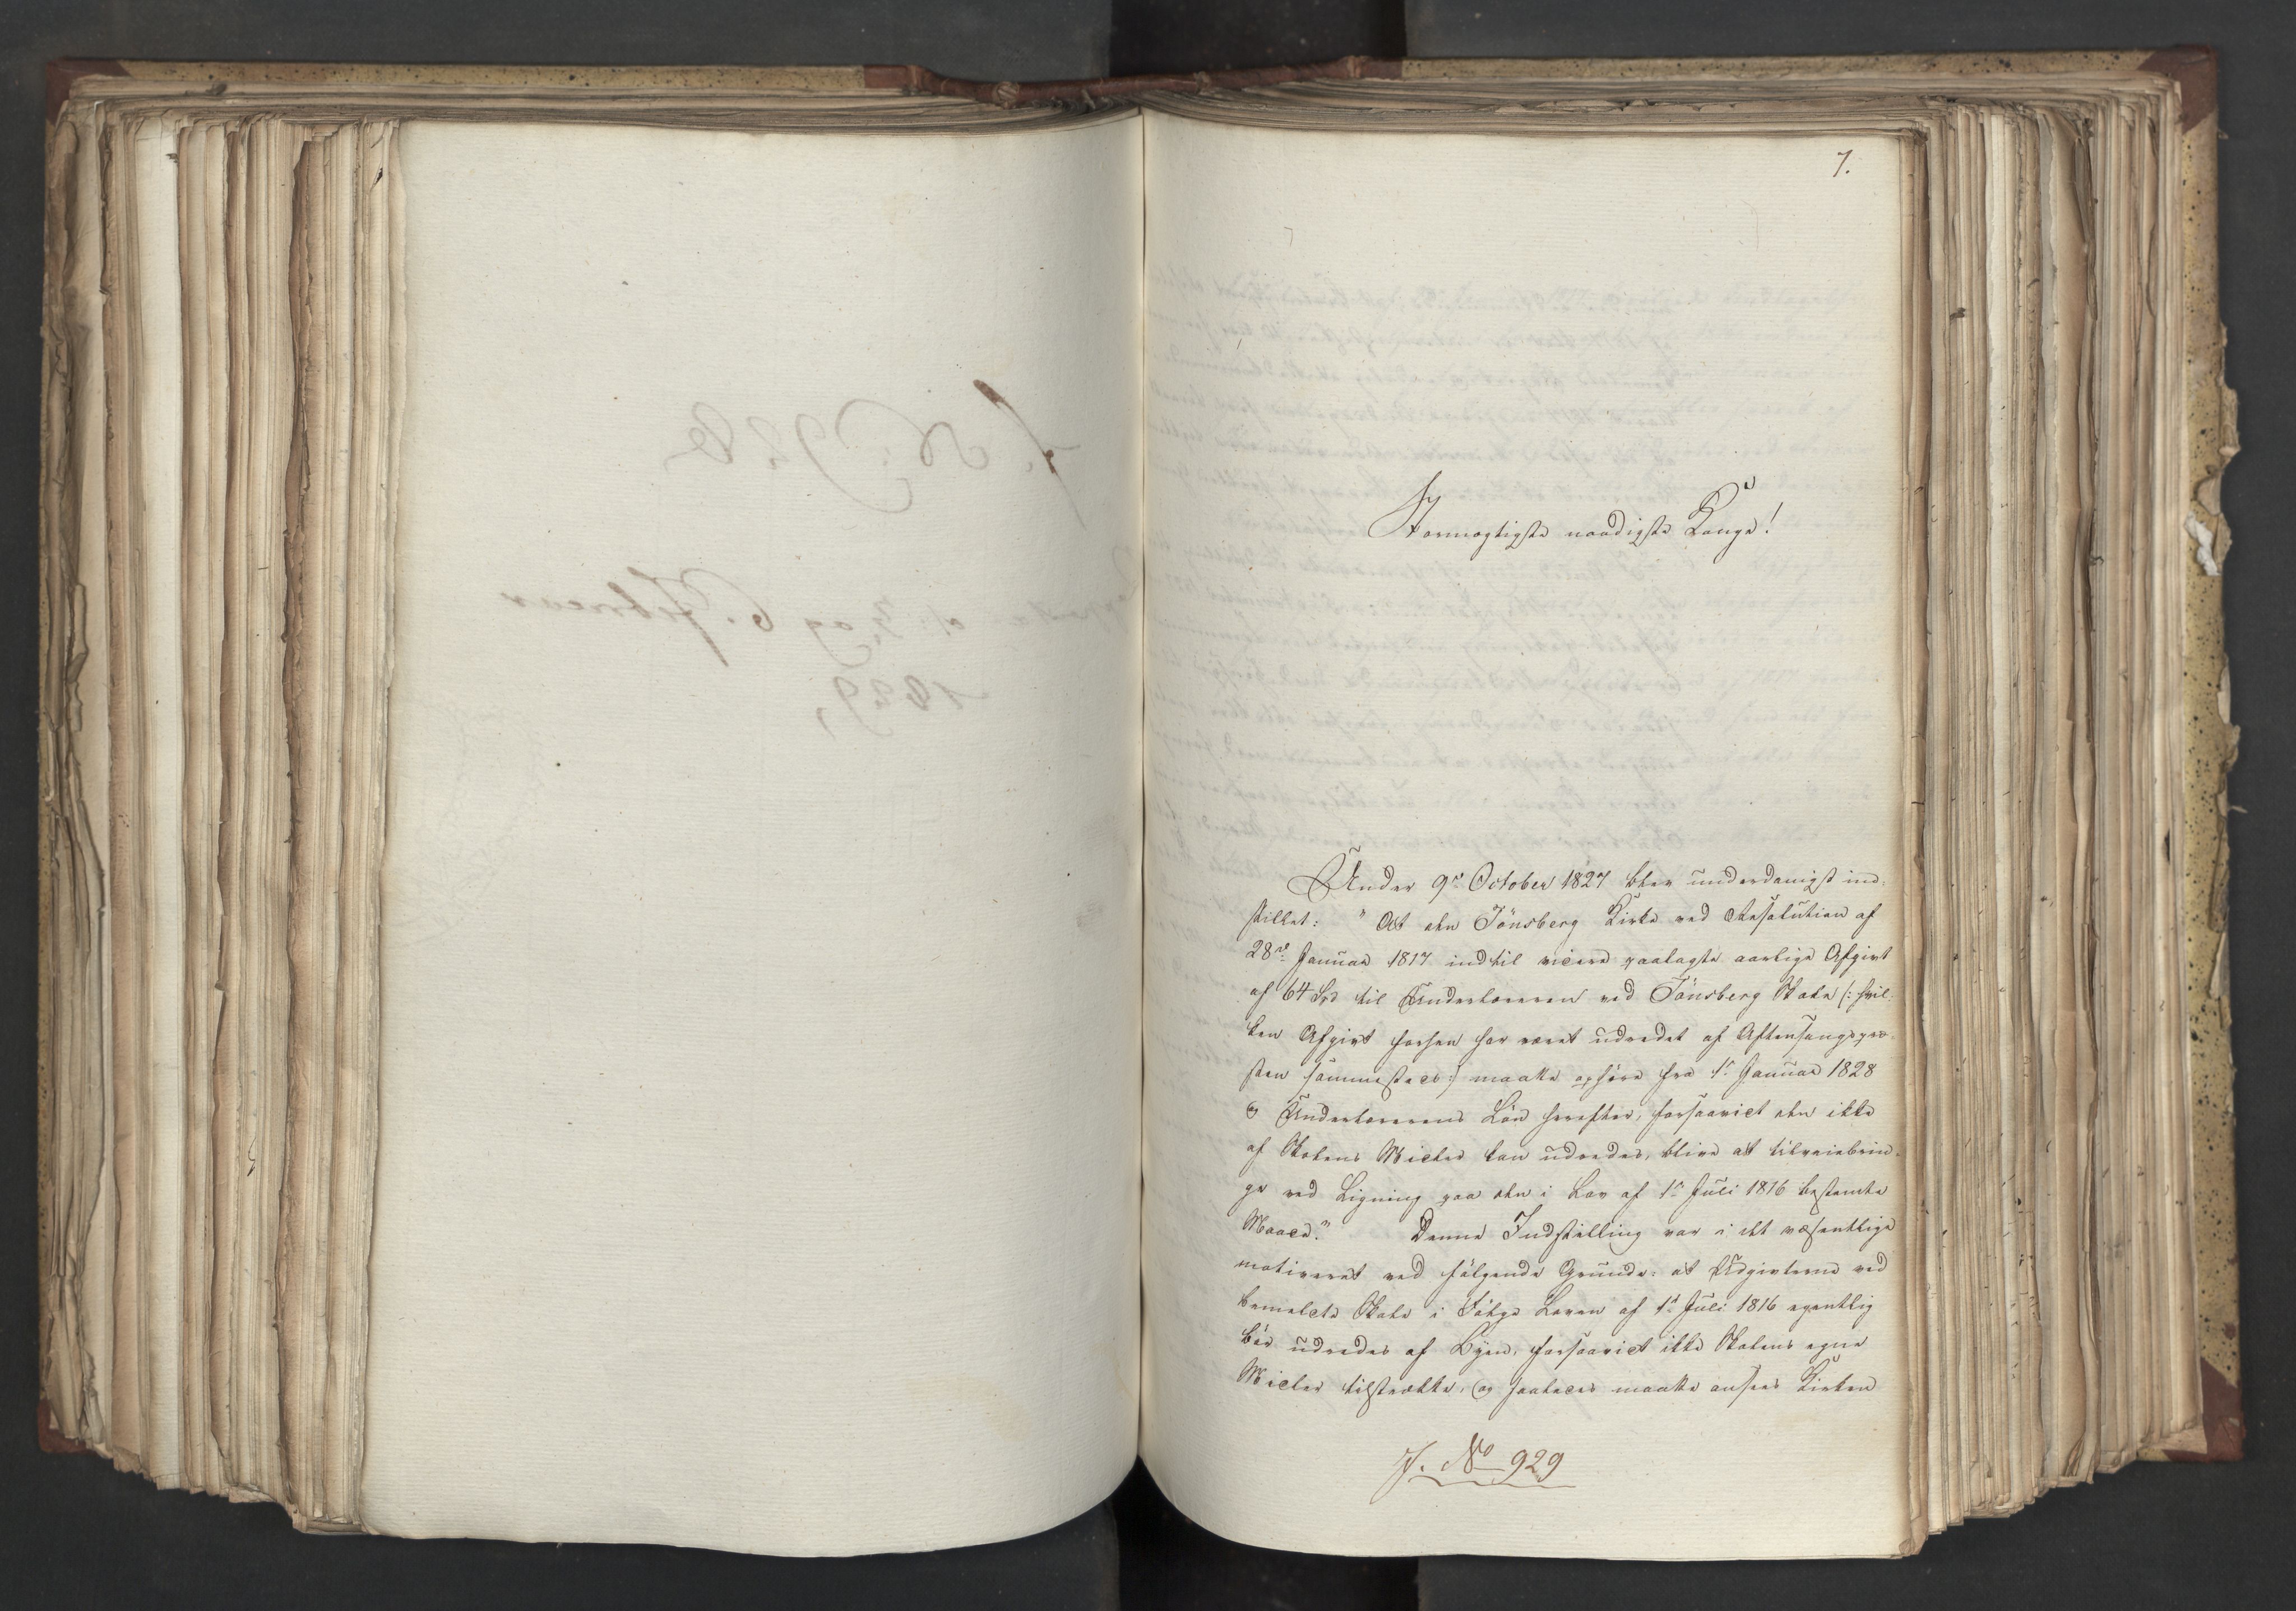 7.
Stormægtigste naadigste Konge!
Under 9de October 1827 blev underdanigst ind-
stillet: "At den Tönsberg Kirke ved Resolution af
28de Januar 1817 indtil videre paalagte aarlige Afgivt
af 64 Spd til Underlæreren ved Tönsberg Skole (: hvil-
ken Afgivt forhen har været udredet af Aftensangspræ-
sten sammesteds :) maatte ophöre fra 1ste Januar 1828
og Underlærerens Lön herefter, forsaavidt den ikke
af Skolens Midler kan udredes, blive at tilveiebrin-
ge ved Ligning paa den i Lov af 1ste Juli 1816 bestemte
Maade." Denne Indstilling var i det væsentlige
motiveret ved fölgende Grunde: at Udgivterne ved
bemeldte Skole i Fölge Loven af 1ste Juli 1816 egentlig
bör udredes af Byen, forsaavidt ikke Skolens egne
Midler tilstrække, og saaledes maatte ansees Kirken
J. No 929